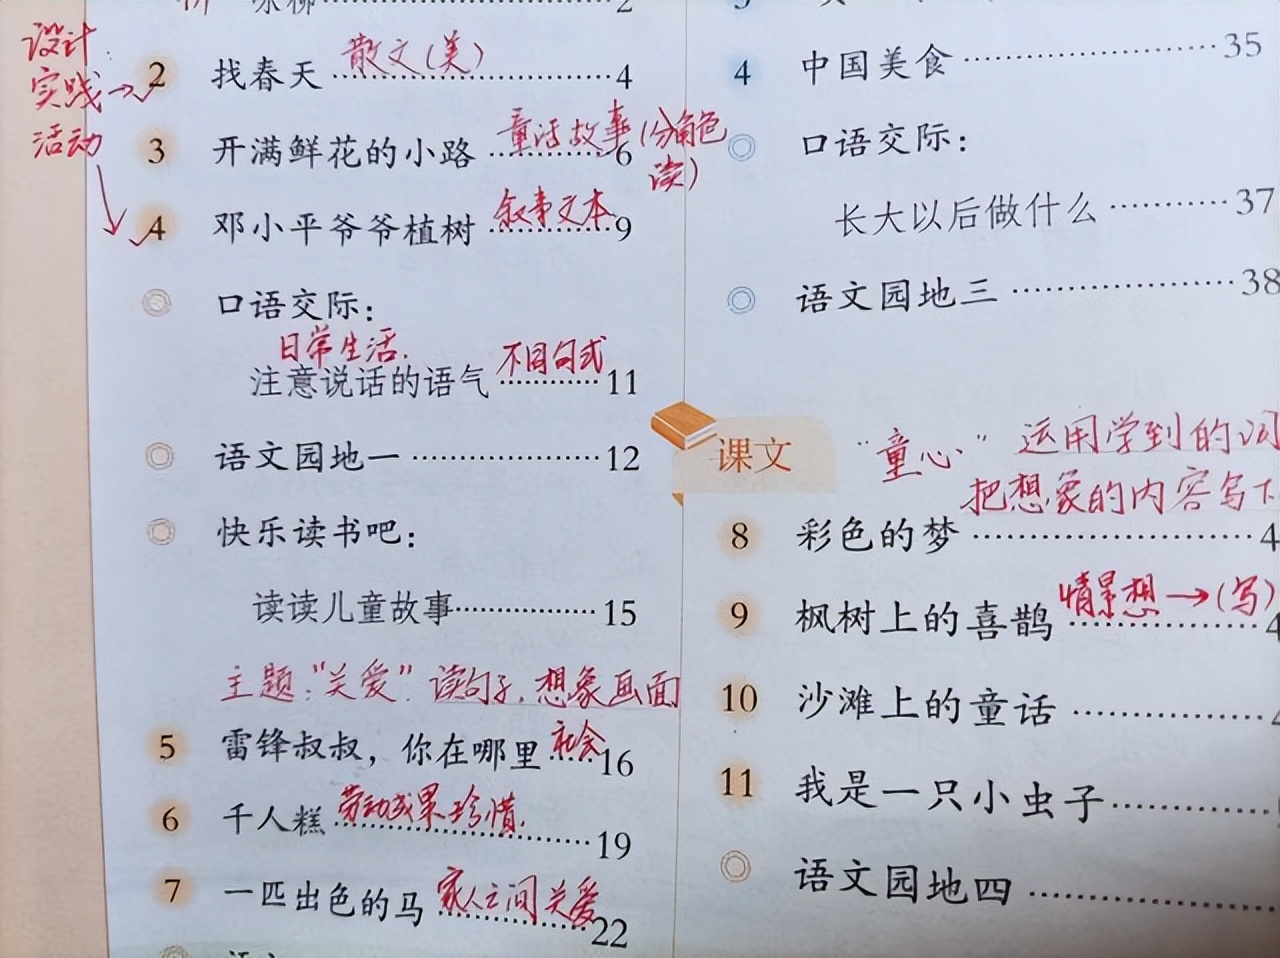 2
设计
实践→
活动
2 找春天 散文(美) 4
3 开满鲜花的小路 童话故事(分角色读) 6
4 邓小平爷爷植树 叙事文本 9
口语交际：
日常生活.
注意说话的语气 不同句式 11
语文园地一 12
快乐读书吧：
读读儿童故事 15
主题："关爱" 读句子,想象画面
5 雷锋叔叔，你在哪里 社会 16
6 千人糕 劳动成果珍惜. 19
7 一匹出色的马 家人之间关爱 22
4 中国美食 35
口语交际：
长大以后做什么 37
语文园地三 38
课文
"童心" 运用学到的词
把想象的内容写下
8 彩色的梦 4
9 枫树上的喜鹊 情景想→(写) 4
10 沙滩上的童话
11 我是一只小虫子
语文园地四